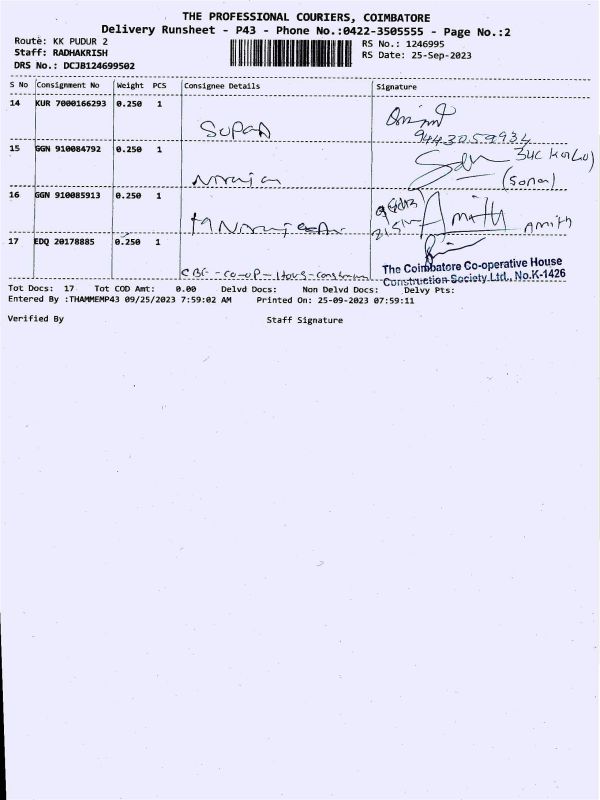 THE PROFESSIONAL COURIERS, COIMBATORE
Delivery Runsheet - P43 - Phone No.:0422-3505555 - Page No.:2
Route: KK PUDUR 2
RS No.: 1246995
Staff: RADHAKRISH
RS Date: 25-Sep-2023
DRS No.: DCJB124699502
S No Consignment No Weight PCS Consignee Details Signature
14 KUR 7000166293 0.250 1
9443059934
15 GGN 910084792 0.250 1
(Sona)
16 GGN 910085913 0.250 1
Amith Amith
17 EDQ 20178885 0.250 1
CBE - CO-OP - House - 
The Coimbatore Co-operative House
Construction Society Ltd., No.K-1426
Tot Docs: 17 Tot COD Amt: 0.00 Delvd Docs: Non Delvd Docs: Delvy Pts:
Entered By :THAMMEMP43 09/25/2023 7:59:02 AM Printed On: 25-09-2023 07:59:11
Verified By Staff Signature